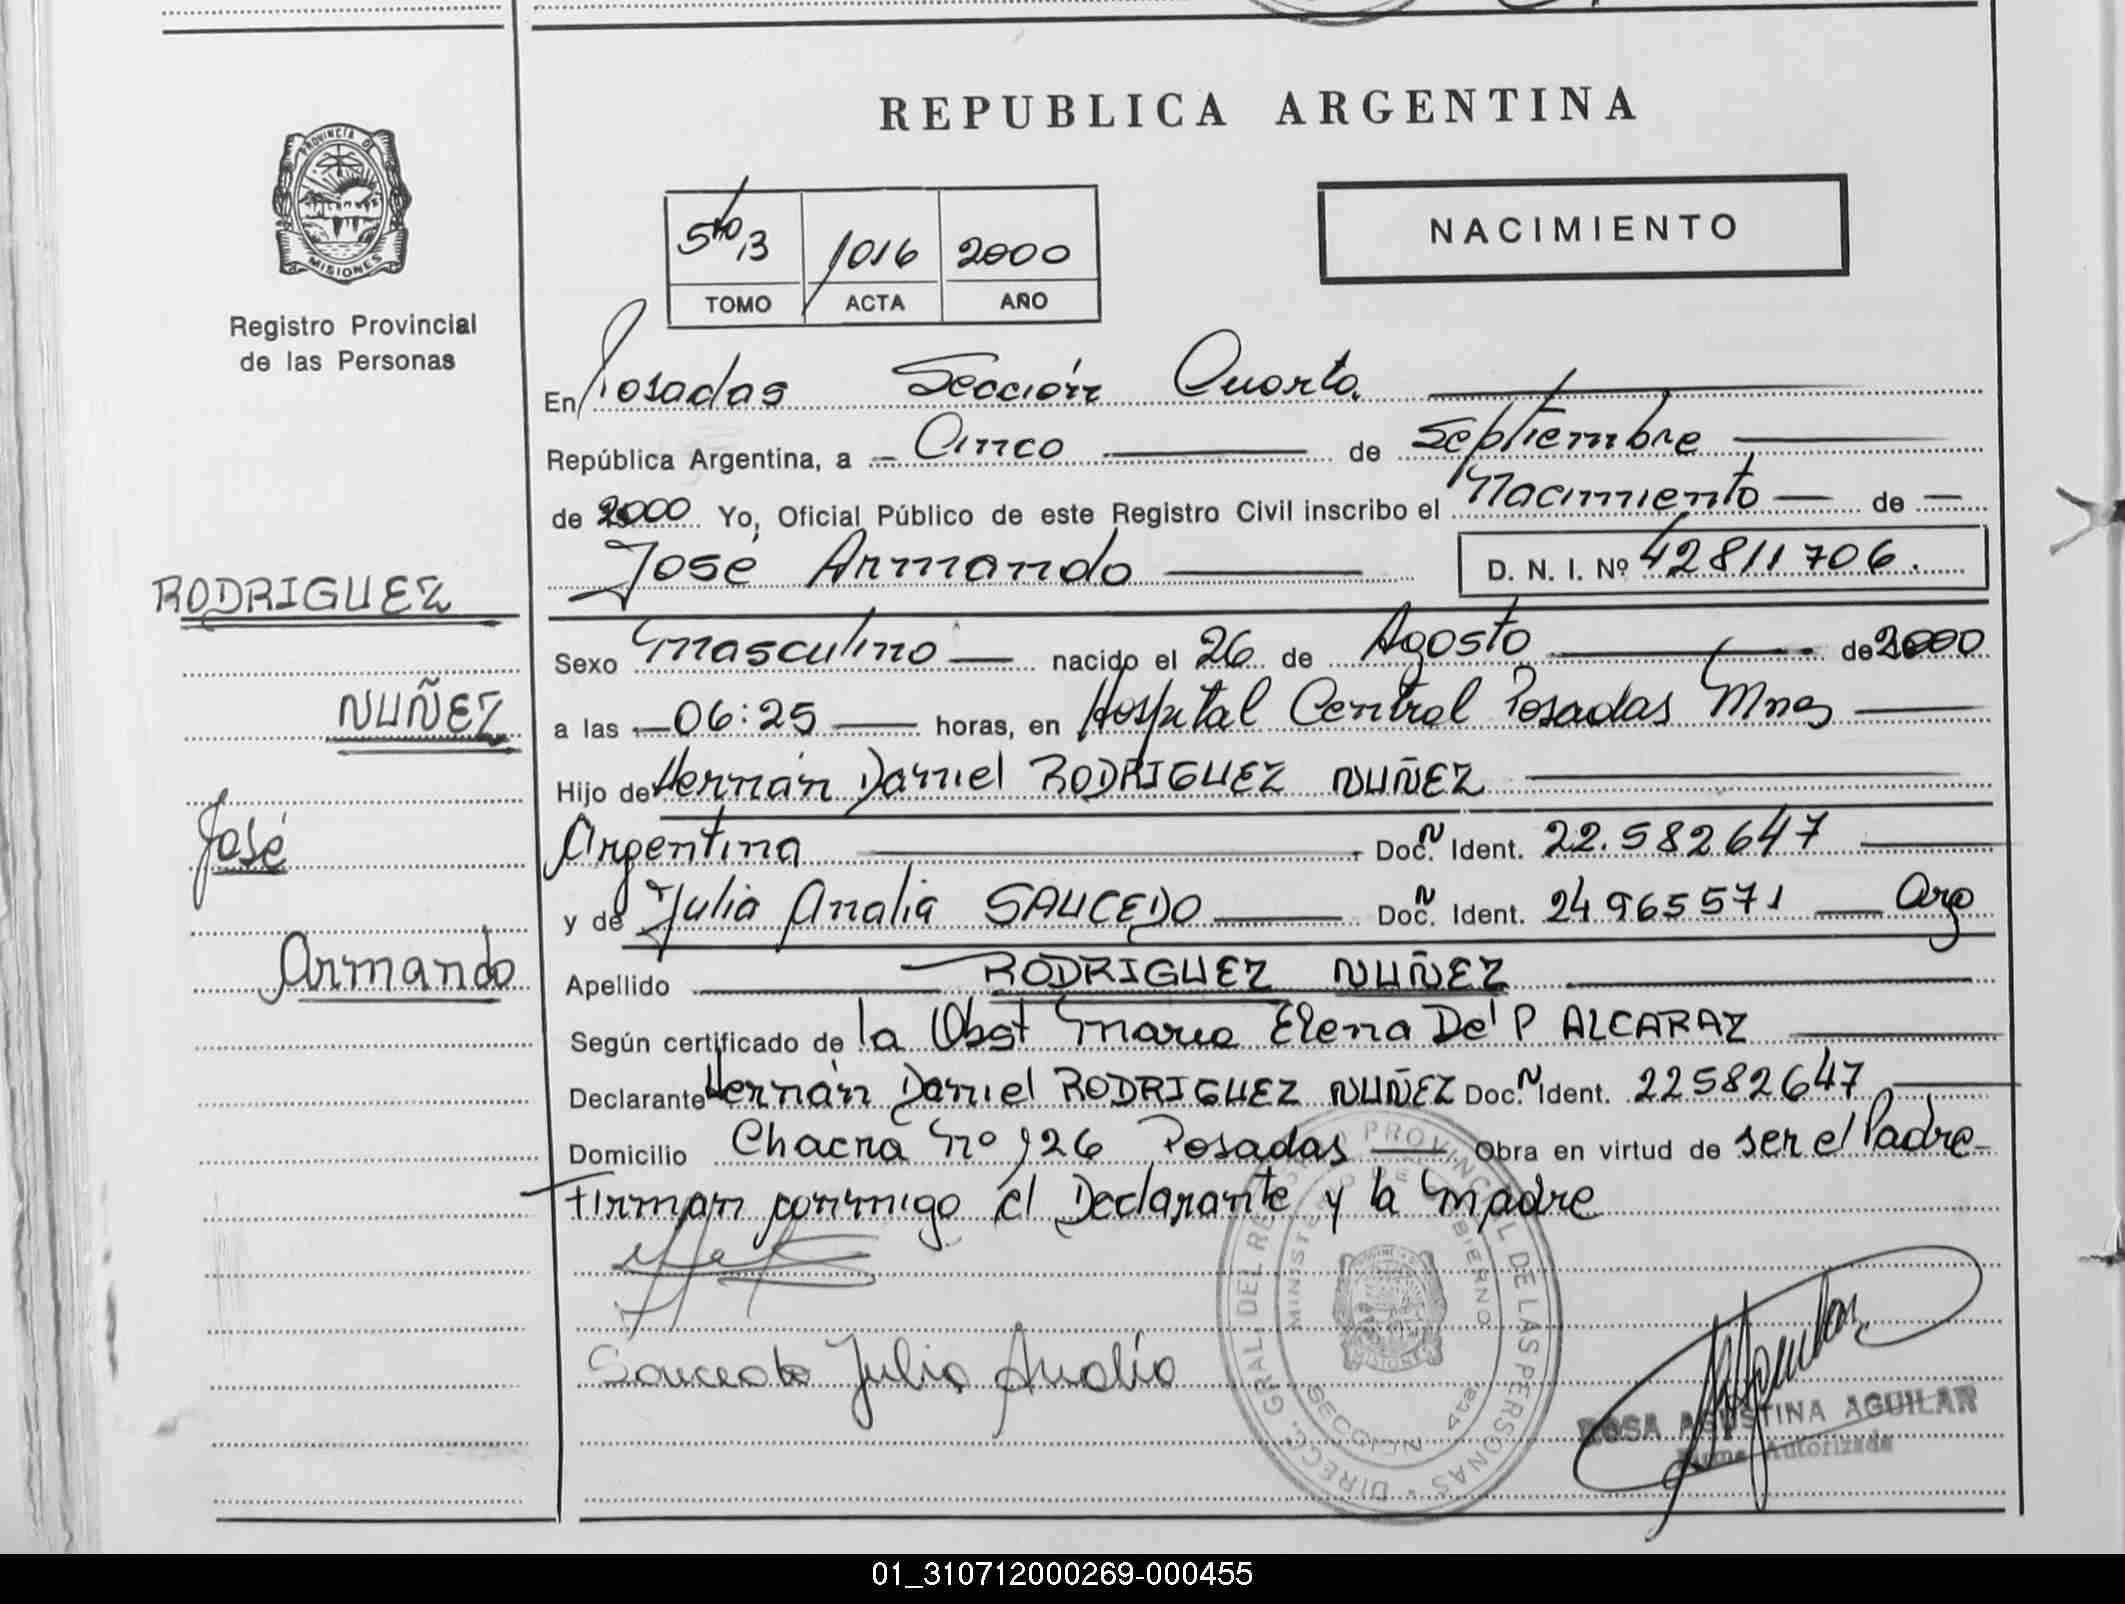 REPUBLICA ARGENTINA
PROVINCIA DE
MISIONES
Registro Provincial
de las Personas
5to/3 1016 2000
TOMO ACTA AÑO
NACIMIENTO
En Posadas Sección Cuarta
República Argentina, a Cinco de Septiembre
de 2000 Yo, Oficial Público de este Registro Civil inscribo el Nacimiento de
José Armando
D. N. I. Nº 42811706.
RODRIGUEZ
NUÑEZ
José
Armando
Sexo Masculino nacido el 26 de Agosto de 2000
a las 06:25 horas, en Hospital Central Posadas Mnes
Hijo de Hernán Daniel RODRIGUEZ NUÑEZ
Argentina Doc. N Ident. 22.582647
y de Julia Analia SAUCEDO Doc. N Ident. 24965571 Arg
Apellido RODRIGUEZ NUÑEZ
Según certificado de la Obst Maria Elena De P ALCARAZ
Declarante Hernán Daniel RODRIGUEZ NUÑEZ Doc. N Ident. 22582647
Domicilio Chacra Nº 126 Posadas Obra en virtud de ser el Padre
Firman conmigo el Declarante y la Madre
Saucedo Julia Analia
DIRECC. GRAL. DEL REGISTRO PROVINCIAL DE LAS PERSONAS
MINISTERIO DE GOBIERNO
MISIONES
SECCION 4ta.
ROSA AGUSTINA AGUILAR
Firma Autorizada
01_310712000269-000455